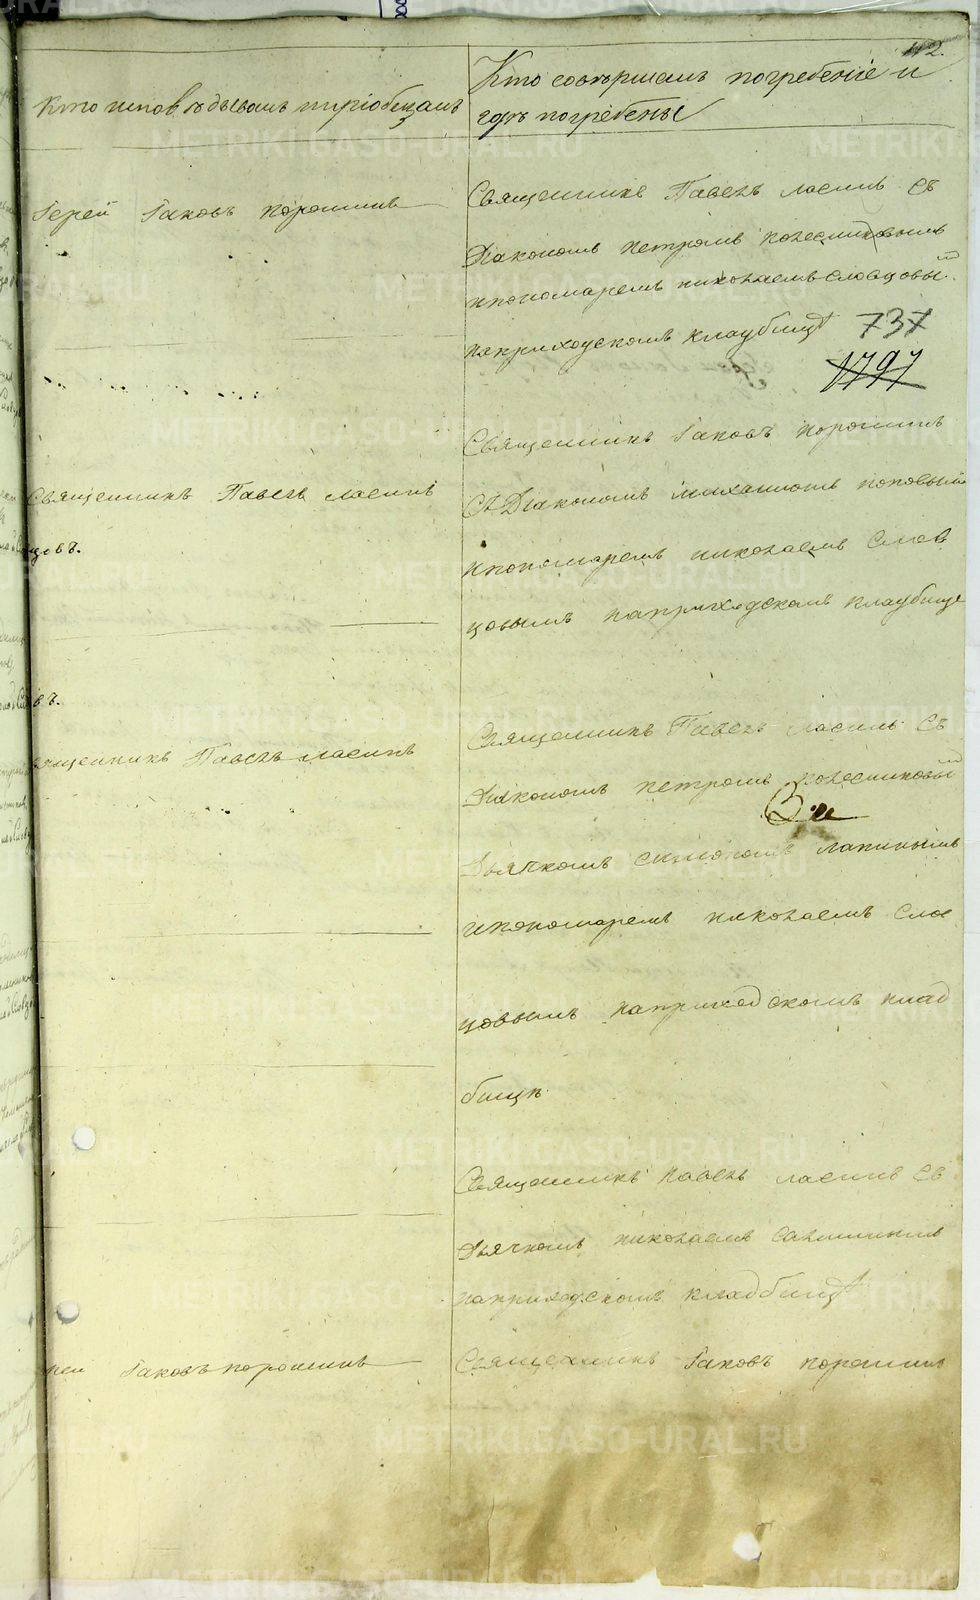 42.
Кто исповѣдывалъ и пріобщалъ
Кто совершалъ погребеніе и
гдѣ погребены
Іерей Іаковъ Порошинъ
Священникъ Павелъ Ласинъ съ
Діакономъ Петромъ Колесниковымъ
ипономаремъ Николаемъ Словцовы
наприходскомъ кладбищѣ
737
1797
Священникъ Павелъ Ласинъ
цовъ.
Священникъ Іаковъ Порошинъ
съ Діакономъ Михаиломъ Поповымъ
ипономаремъ Николаемъ Слов
цовымъ наприходскомъ кладбище
въ.
ященникъ Павелъ Ласинъ
Священникъ Павелъ Ласинъ съ
Діакономъ Петромъ Колесниковы
Дьячкомъ Симономъ Лапинымъ
ипономаремъ Николаемъ Слов
цовымъ наприходскомъ клад
бищѣ
Священникъ Павелъ Ласинъ съ
Дьячкомъ Николаемъ
наприходскомъ кладбищѣ
рей Іаковъ Порошинъ
Священникъ Іаковъ Порошинъ
METRIKI.GASO-URAL.RU